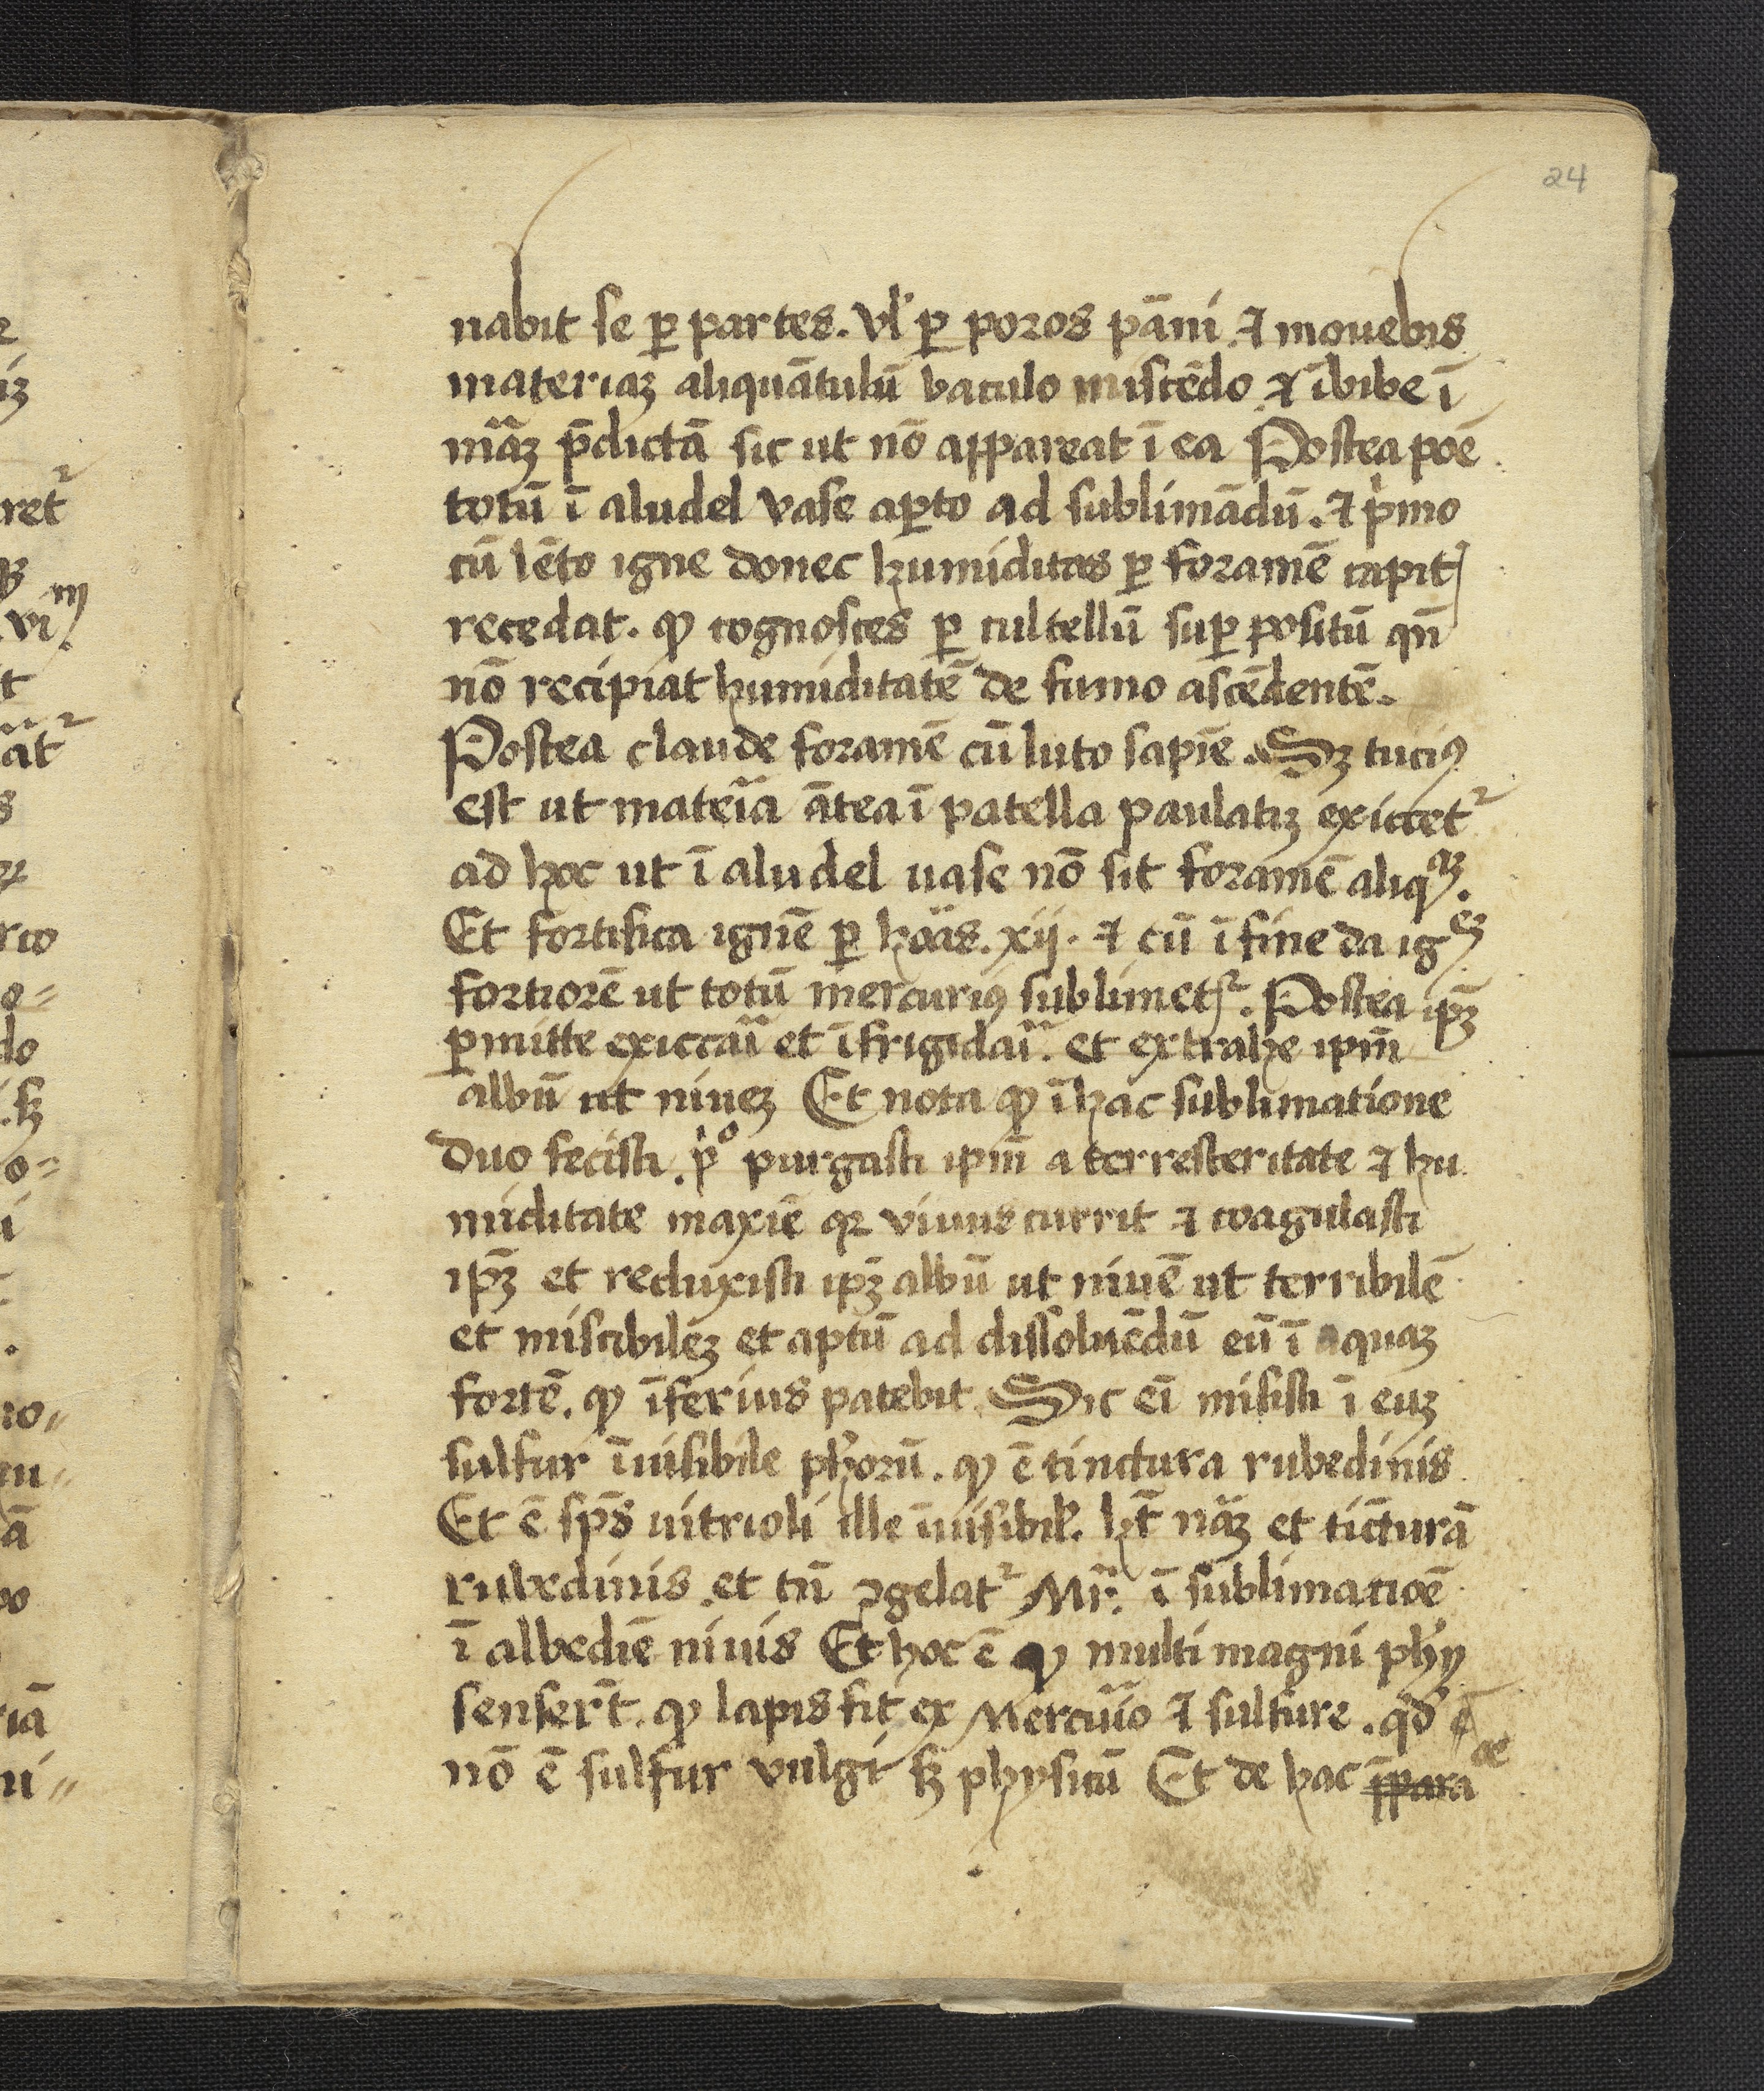 24
nabit se ꝑ partes. vl̛ ꝑ poros pāni ⁊ mouebis
materiaꝫ aliquātulū baculo miscēdo ⁊ ībibe ī
mãꝫ p̄dictā sic ut nō appareat ī ea Postea poē
totū ī aludel vase aꝑto ad sublimādū. ⁊ pͥmo
cū lēto igne donec humiditas ꝑ foramē capitꝭ
recedat. ꝙ cognosces ꝑ cultellū suꝑ positū qn̄
nō recipiat humiditatē de fumo ascēdentē.
Postea claude foramē cū luto sapiē. Sꝫ tuciꝰ
est ut mateīa ātea ī patella paulatiꝫ exiccet᷑
ad hoc ut ī aludel uase nō sit foramē aliqᷓꝫ.
Et fortifica ignē ꝑ hoās. xij. ⁊ cū ī fine da igᵉꝫ
fortiorē ut totū mercuriꝰ sublimet᷑. Postea ip̄ꝫ
ꝑmitte exiccaī et īfrigidaī. et extrahe ipm̄
albū ut niueꝫ Et nota ꝙ ī hac sublimatione
duo fecisti. pͥº purgasti ipm̄ a terresteritate ⁊ hu
miditate maxiē qꝛ viuus currit ⁊ coagulasti
ip̄ꝫ et reduxisti ip̄ꝫ albū ut niuē ut terribilē
et miscibileꝫ et aptū ad dissoluēdū eū ī aquaꝫ
fortē. ꝙ īferius patebit. Sic eī misisti ī euꝫ
sulfur īuisibile ph̄orū. ꝙ ē tinctura rubedinis
Et ē sp̄s uitrioli ille īuisibil̛. ht̄ nāꝫ et tīcturā
rubedinis. et tn̄ ꝯgelat᷑ Mr̄. ī sublimatioē
ī albediē niuis Et hoc ē ꝙ multi magni ph̄y
senser̄t. ꝙ lapis fit ex Mercuīo ⁊ sulfure. qd̛ ē
nō ē sulfur vulgi sꝫ physicū Et de hac p̄para